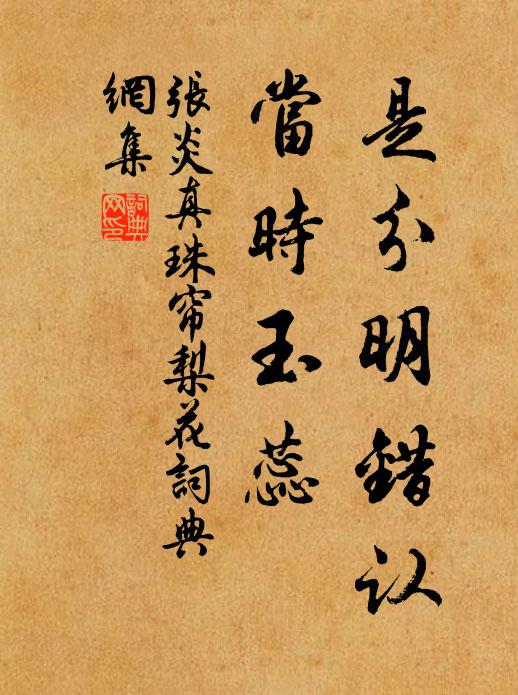 是分明錯认
當時玉蕊
張炎真珠帘梨花詞典
網集
詞典
网印